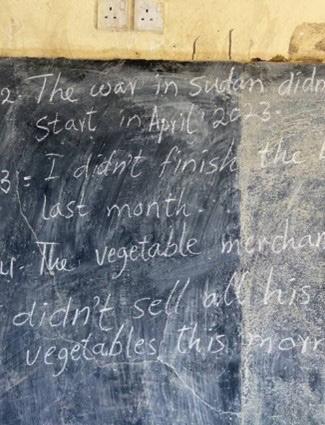 2. The war in Sudan didn
Start in April 2023.
3: I didn't finish the
last month.
4. The vegetable merchan
didn't sell all his
vegetables this morn